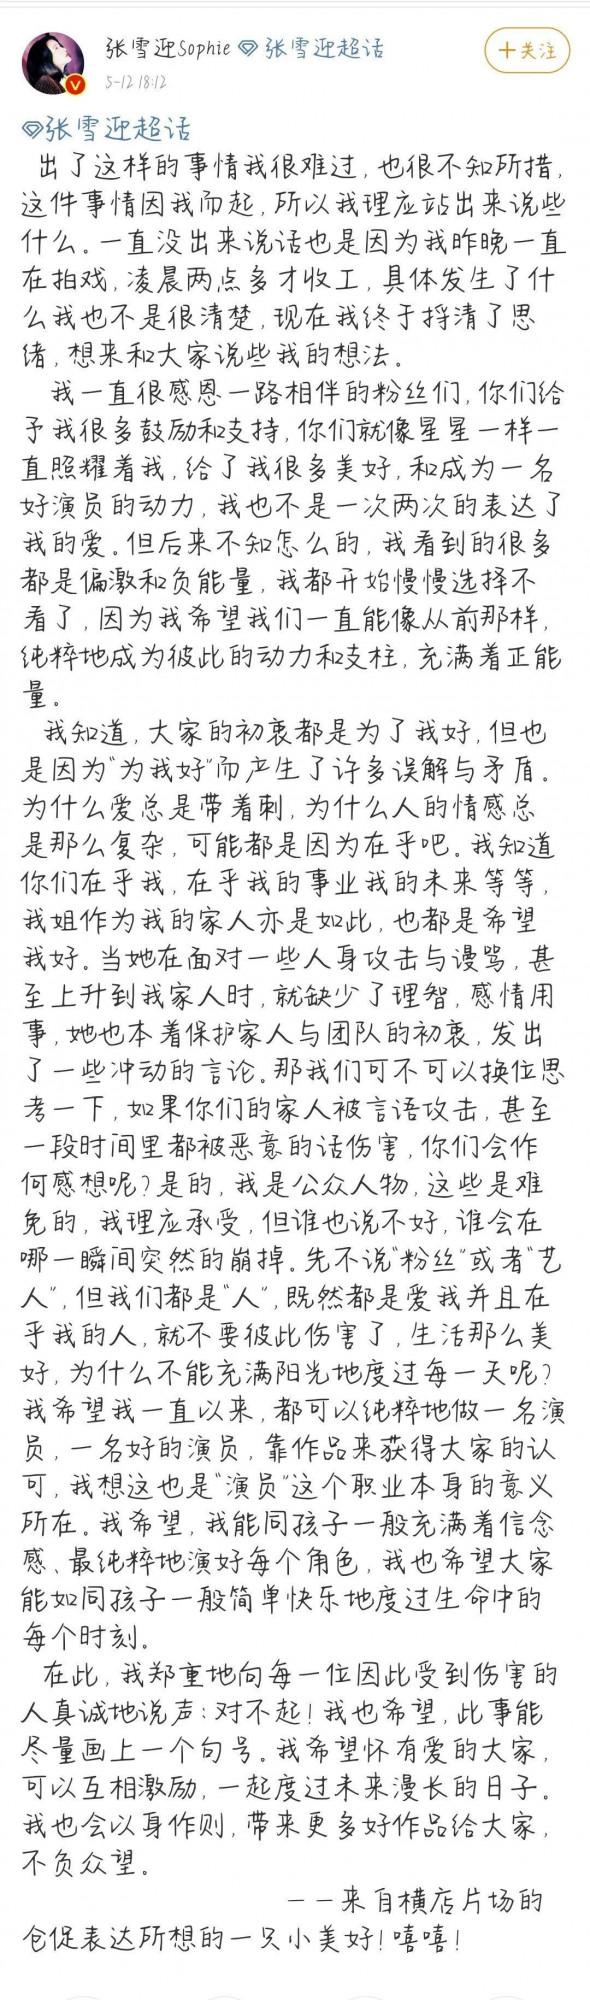 张雪迎Sophie 张雪迎超话
+关注
5-12 18:12
张雪迎超话
出了这样的事情我很难过，也很不知所措，
这件事情因我而起，所以我理应站出来说些
什么。一直没出来说话也是因为我昨晚一直
在拍戏，凌晨两点多才收工，具体发生了什
么我也不是很清楚，现在我终于捋清了思
绪，想来和大家说些我的想法。
我一直很感恩一路相伴的粉丝们，你们给
予我很多鼓励和支持，你们就像星星一样一
直照耀着我，给了我很多美好，和成为一名
好演员的动力，我也不是一次两次的表达了
我的爱。但后来不知怎么的，我看到的很多
都是偏激和负能量，我都开始慢慢选择不
看了，因为我希望我们一直能像从前那样，
纯粹地成为彼此的动力和支柱，充满着正能
量。
我知道，大家的初衷都是为了我好，但也
是因为“为我好”而产生了许多误解与矛盾。
为什么爱总是带着刺，为什么人的情感总
是那么复杂，可能都是因为在乎吧。我知道
你们在乎我，在乎我的事业我的未来等等，
我姐作为我的家人亦是如此，也都是希望
我好。当她在面对一些人身攻击与谩骂，甚
至上升到我家人时，就缺少了理智，感情用
事，她也本着保护家人与团队的初衷，发出
了一些冲动的言论。那我们可不可以换位思
考一下，如果你们的家人被言语攻击，甚至
一段时间里都被恶意的话伤害，你们会作
何感想呢？是的，我是公众人物，这些是难
免的，我理应承受，但谁也说不好，谁会在
哪一瞬间突然的崩掉。先不说“粉丝”或者“艺
人”，但我们都是“人”，既然都是爱我并且在
乎我的人，就不要彼此伤害了，生活那么美
好，为什么不能充满阳光地度过每一天呢？
我希望我一直以来，都可以纯粹地做一名演
员，一名好的演员，靠作品来获得大家的认
可，我想这也是“演员”这个职业本身的意义
所在。我希望，我能同孩子一般充满着信念
感、最纯粹地演好每个角色，我也希望大家
能如同孩子一般简单快乐地度过生命中的
每个时刻。
在此，我郑重地向每一位因此受到伤害的
人真诚地说声：对不起！我也希望，此事能
尽量画上一个句号。我希望怀有爱的大家，
可以互相激励，一起度过未来漫长的日子。
我也会以身作则，带来更多好作品给大家，
不负众望。
——来自横店片场的
仓促表达所想的一只小美好！嘻嘻！